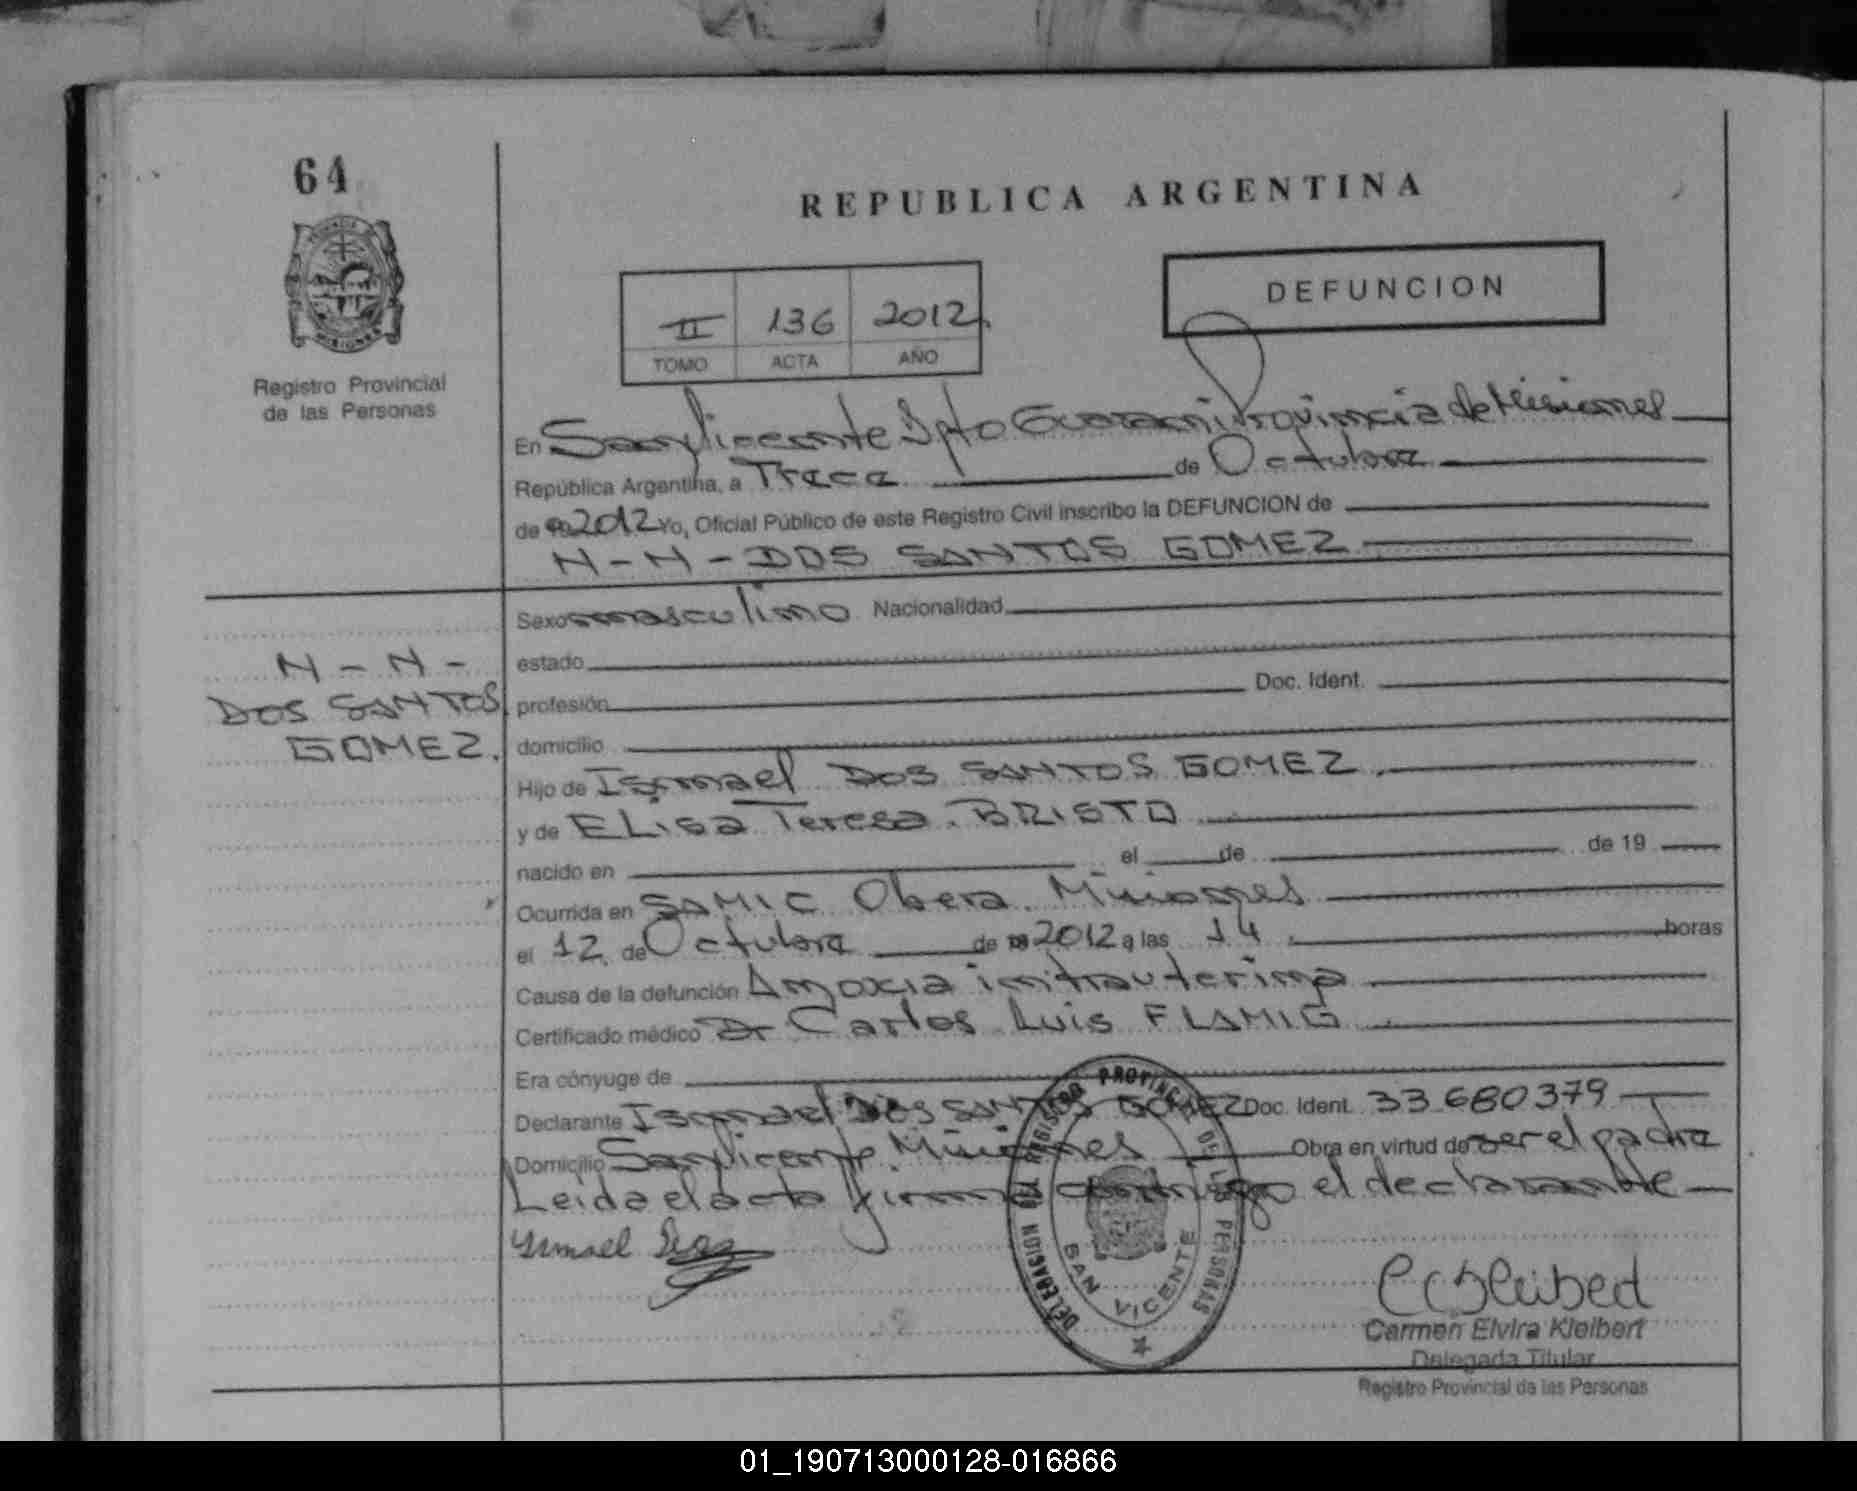 64
REPUBLICA ARGENTINA
DEFUNCION
II 136 2012
TOMO ACTA AÑO
Registro Provincial
de las Personas
En San Vicente Dpto Guarani Provincia de Misiones
República Argentina, a Trece de Octubre
de 2012 Yo, Oficial Público de este Registro Civil inscribo la DEFUNCION de
N-N-DOS SANTOS GOMEZ
Sexo masculino Nacionalidad
N-N-
DOS SANTOS
GOMEZ.
estado
profesión Doc. Ident.
domicilio
Hijo de Ismael DOS SANTOS GOMEZ
y de ELisa Teresa BRISTO
nacido en el de de 19
Ocurrida en SAMIC Obera Misiones
el 12 de Octubre de 2012 a las 14 horas
Causa de la defunción Anoxia intrauterina
Certificado médico Dr Carlos Luis FLAMIG
Era cónyuge de
Declarante Ismael DOS SANTOS GOMEZ Doc. Ident. 33.680379
Domicilio San Vicente, Misiones Obra en virtud de ser el padre
Leida el acta firma conmigo el declarante
DELEGACION DEL REGISTRO PROVINCIAL DE LAS PERSONAS
SAN VICENTE
Carmen Elvira Kleibert
Delegada Titular
Registro Provincial de las Personas
01_190713000128-016866